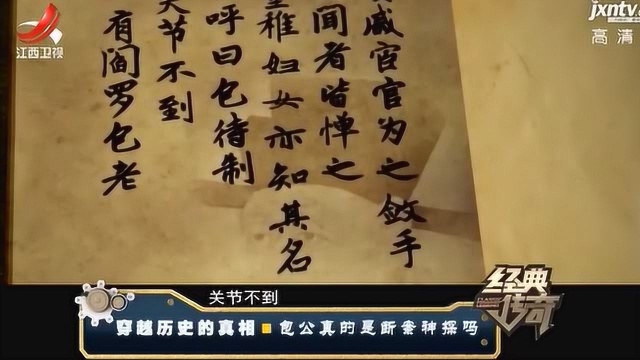 江西卫视
jxntv.
高清
戚宦官为之敛手
闻者皆惮之
稚妇女亦知其名
呼曰包待制
关节不到
有阎罗包老
关节不到
经典传奇
穿越历史的真相 ■ 包公真的是断案神探吗